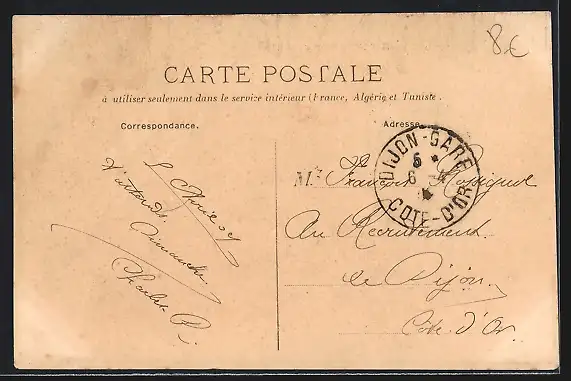 8€
CARTE POSTALE
à utiliser seulement dans le service intérieur (France, Algérie et Tunisie.
Correspondance.
Adresse.
DIJON-GARE
6
CÔTE-D'OR
Dimanche
Charles R.
Mr François
Au Recrutement
de Dijon
Côte d'Or